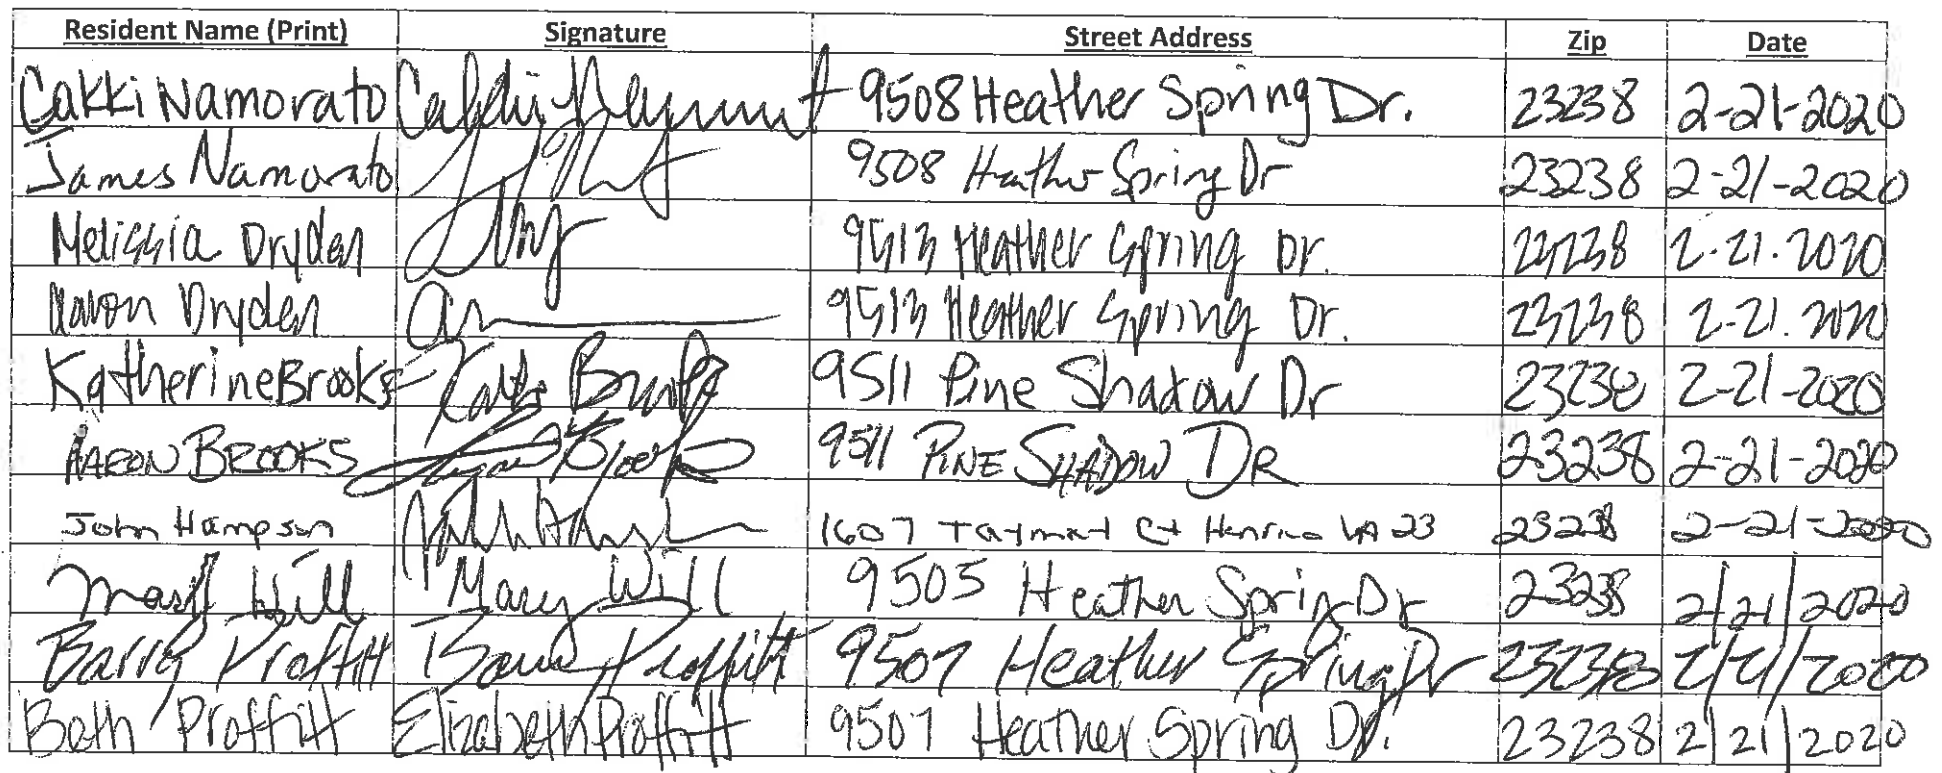 Resident Name (Print) Signature Street Address Zip Date
Cakki Namorato 9508 Heather Spring Dr. 23238 2-21-2020
James Namorato 9508 Heather Spring Dr 23238 2-21-2020
Melissia Dryden 9513 Heather Spring Dr. 23238 2.21.2020
Aaron Dryden 9513 Heather Spring Dr. 23238 2-21.2020
Katherine Brooks Katie Brooks 9511 Pine Shadow Dr 23238 2-21-2020
AARON BROOKS Brooks 9511 PINE SHADOW DR 23238 2-21-2020
John Hampson 1607 Ct Henrico VA 23 23238 2-21-2020
Mary Will 9505 Heather Spring Dr 23238 2/21/2020
Barry Proffitt Barry Proffitt 9507 Heather Spring Dr 23238 2/21/2020
Beth Proffitt Elizabeth Proffitt 9507 Heather Spring Dr. 23238 2/21/2020